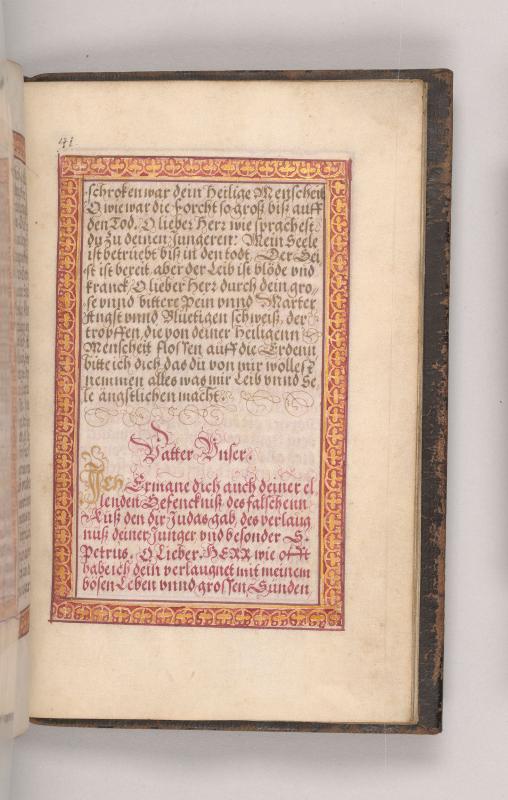 41
schroken war dein heilige Menscheit
O wie war die Forcht so groß biß auff
den Tod. O lieber Herr wie sprachest
du zu deinen Jungeren: Mein Seele
ist betruebt biß in den todt, Der Gei
st ist bereit aber der Leib ist blöde vnd
kranck, O lieber Herr durch dein gro-
se vnnd bittere Pein vnnd Marter
Angst vnnd Bluetigen schweiß, der
tropffen, die von deiner Heiligenn
Menscheit flossen auff die Erdenn
bitte ich dich das du von mir wollest
nemmen alles was mir Leib vnnd Se
le ängstlichen macht.
Vatter Vnser.
Ich Ermane dich auch deiner el
lenden Gefenckniß des falschenn
Kuß den dir Judas gab, des verlaug
nuß deiner Junger vnd besonder S.
Petrus, O Lieber HERR wie offt
habe ich dein verlaugnet mit meinem
bösen Leben vnnd grossen Sunden